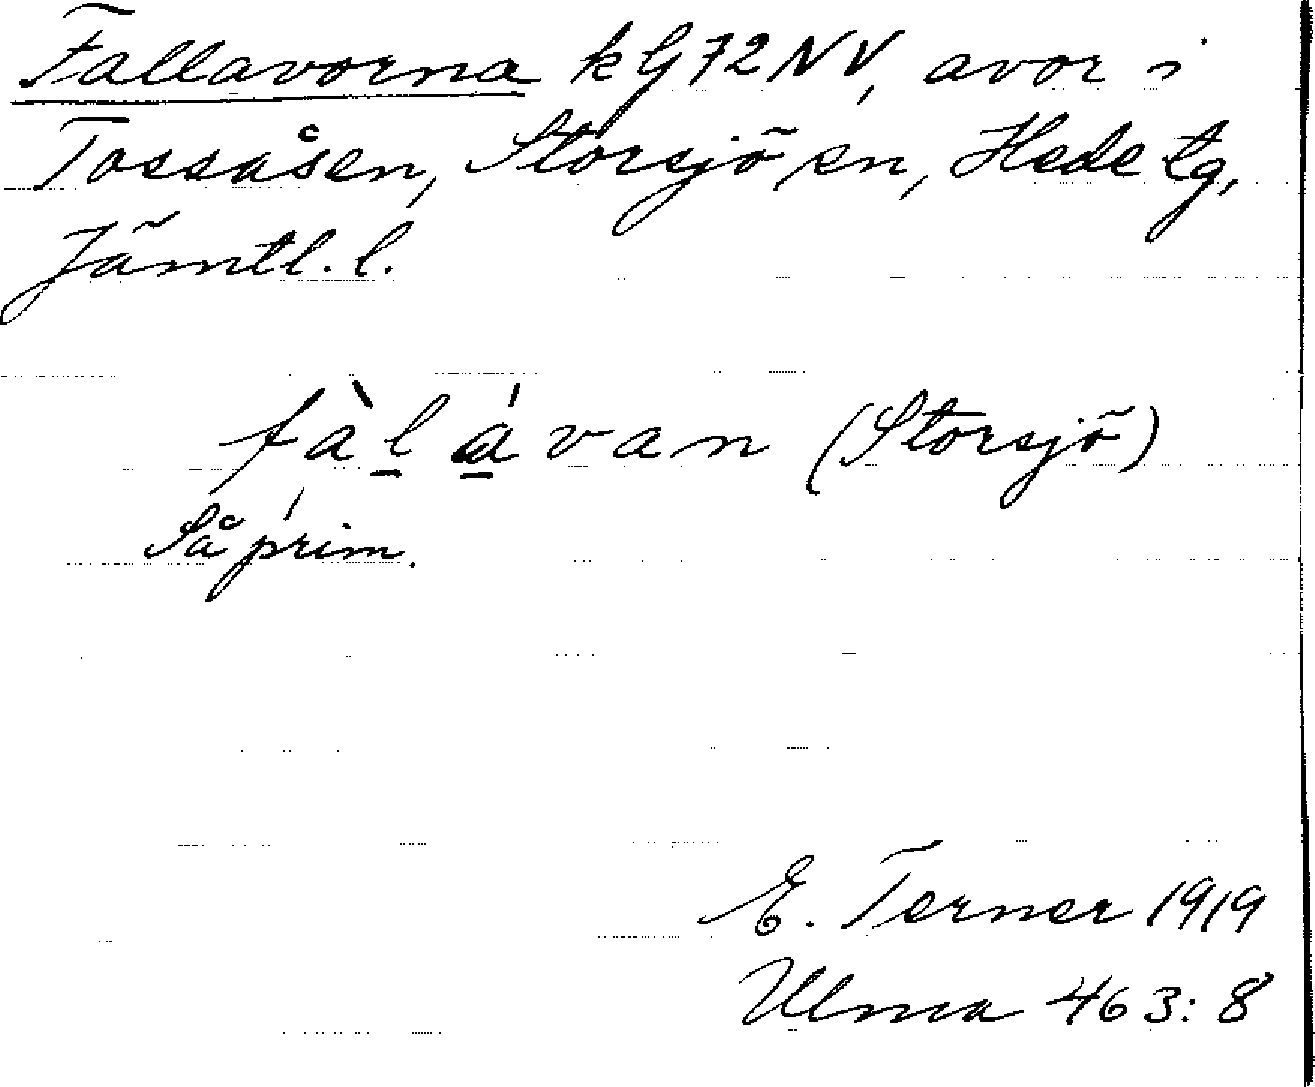 Fallavorna kG72NV, avor i
Tossåsen, Storsjö sn, Hede tg,
Jämtl. l.
fàl̲á̲van (Storsjö)
Så prim.
E. Terner 1919
Ulma 463:8